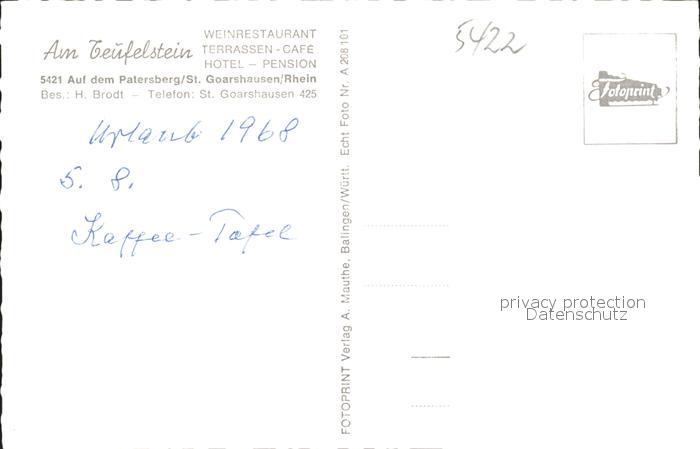 Am Teufelstein
WEINRESTAURANT
TERRASSEN - CAFÉ
HOTEL – PENSION
5421 Auf dem Patersberg/St. Goarshausen/Rhein
Bes.: H. Brodt – Telefon: St. Goarshausen 425
Urlaub 1968
5. 8.
Kaffee - Tafel
FOTOPRINT Verlag A. Mauthe, Balingen/Württ. Echt Foto Nr. A 268 101
5422
Fotoprint
privacy protection
Datenschutz